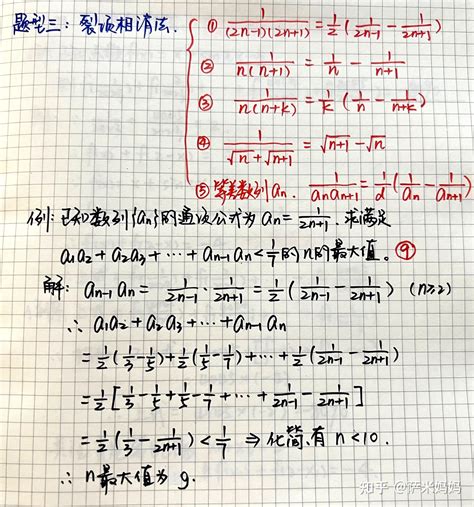 题型三：裂项相消法.
① 1/((2n-1)(2n+1)) = 1/2 (1/(2n-1) - 1/(2n+1))
② 1/(n(n+1)) = 1/n - 1/(n+1)
③ 1/(n(n+k)) = 1/k (1/n - 1/(n+k))
④ 1/(√n + √(n+1)) = √(n+1) - √n
⑤ 等差数列an. 1/(anan+1) = 1/d (1/an - 1/an+1)
例: 已知数列{an}的通项公式为an = 1/(2n+1). 求满足
a1a2 + a2a3 + ··· + an-1an < 1/7 的n的最大值。⑨
解: an-1an = 1/(2n-1) · 1/(2n+1) = 1/2 (1/(2n-1) - 1/(2n+1)) (n≥2)
∴ a1a2 + a2a3 + ··· + an-1an
= 1/2 (1/3 - 1/5) + 1/2 (1/5 - 1/7) + ··· + 1/2 (1/(2n-1) - 1/(2n+1))
= 1/2 [1/3 - 1/5 + 1/5 - 1/7 + ··· + 1/(2n-1) - 1/(2n+1)]
= 1/2 (1/3 - 1/(2n+1)) < 1/7 ⇒ 化简,有 n<10.
∴ n最大值为 9.
知乎 @萨米妈妈